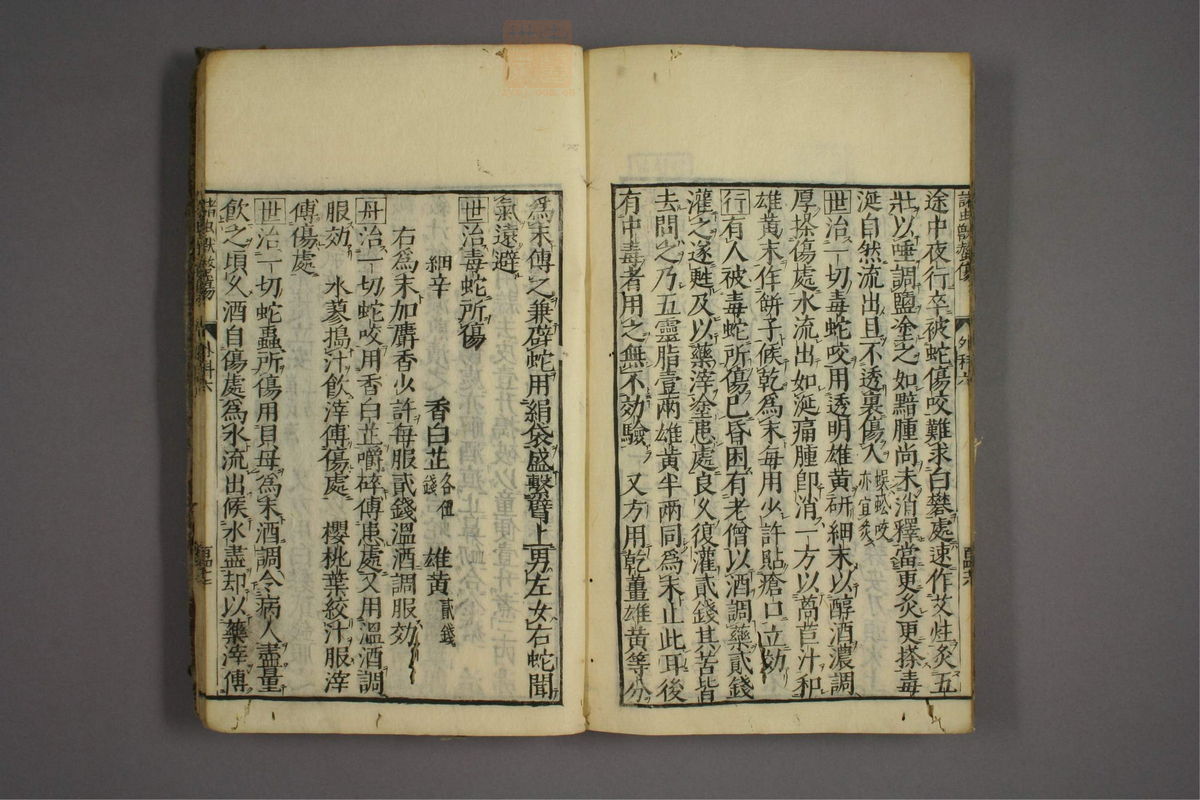 途中夜行卒被蛇傷咬難求白礬處速作艾炷灸五
壯以唾調鹽塗之如黯腫尚未消釋當更灸更搽毒
涎自然流出且不透裏傷人蜈蚣咬亦宜灸
世治一切毒蛇咬用透明雄黃研細末以醇酒濃調
厚搽傷處水流出如涎痛腫卽消一方以萵苣汁和
雄黃末作餅子候乾爲末每用少許貼瘡口立効
行有人被毒蛇所傷已昏困有老僧以酒調藥貳錢
灌之遂甦及以藥滓塗患處良久復灌貳錢其苦皆
去問之乃五靈脂壹兩雄黃半兩同爲末止此耳後
有中毒者用之無不効驗　又方用乾薑雄黃等分
爲末傅之兼辟蛇用絹袋盛繫臂上男左女右蛇聞
氣遠避
世治毒蛇所傷
細辛　香白芷各伍錢　雄黃貳錢
右爲末加麝香少許每服貳錢溫酒調服効
丹治一切蛇咬用香白芷嚼碎傅患處又用溫酒調
服効　水蓼搗汁飮滓傅傷處　櫻桃葉絞汁服滓
傅傷處
世治一切蛇蟲所傷用貝母爲末酒調令病人盡量
飮之頃久酒自傷處爲水流出候水盡却以藥滓傅
諸虫獸螫傷
外科六